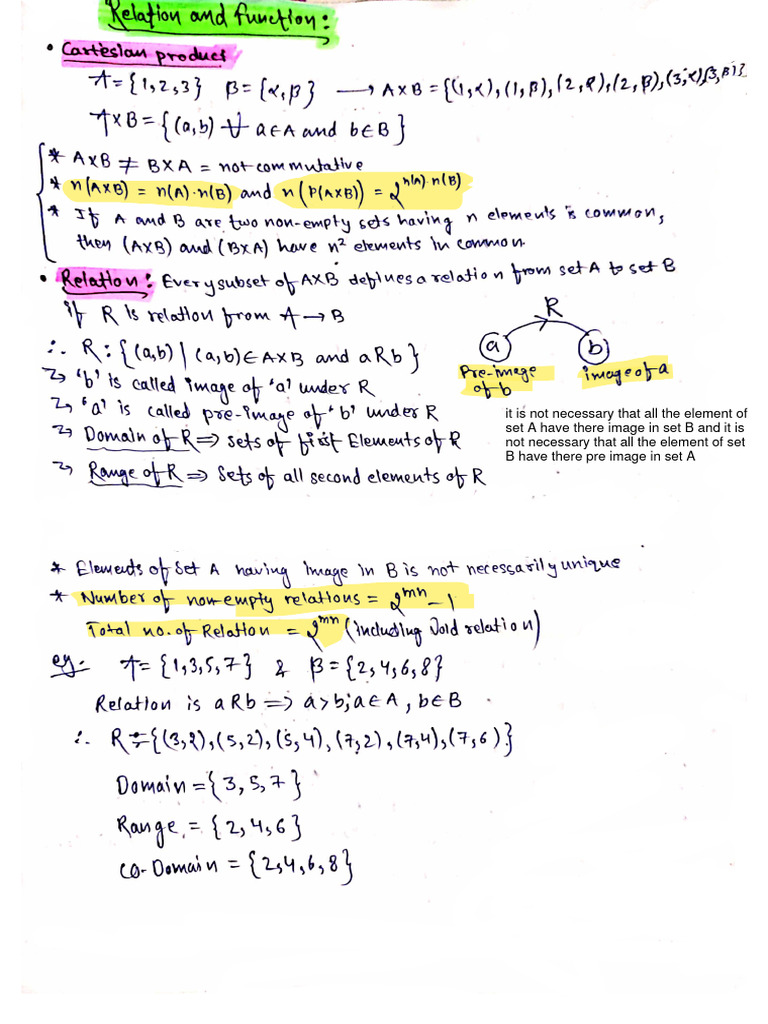 Relation and function:
• Cartesian product
A={1,2,3} B={α,β} → A×B={(1,α),(1,β),(2,α),(2,β),(3,α),(3,β)}
A×B={(a,b) ∀ a∈A and b∈B}
* A×B ≠ B×A = not commutative
* n(A×B) = n(A)·n(B) and n(P(A×B)) = 2^n(A)·n(B)
* If A and B are two non-empty sets having n elements is common,
then (A×B) and (B×A) have n² elements in common.
• Relation: Every subset of A×B defines a relation from set A to set B
if R is relation from A→B
∴ R:{(a,b)|(a,b)∈A×B and aRb}
R
a b
Pre-image of b
image of a
→ 'b' is called image of 'a' under R
→ 'a' is called pre-image of 'b' under R
→ Domain of R ⇒ sets of first Elements of R
→ Range of R ⇒ Sets of all second elements of R
it is not necessary that all the element of
set A have there image in set B and it is
not necessary that all the element of set
B have there pre image in set A
* Elements of Set A having image in B is not necessarily unique
* Number of non-empty relations = 2^mn -1
Total no. of Relation = 2^mn (including Void relation)
eg:- A={1,3,5,7} & B={2,4,6,8}
Relation is aRb ⇒ a>b; a∈A, b∈B
∴ R={(3,2),(5,2),(5,4),(7,2),(7,4),(7,6)}
Domain={3,5,7}
Range = {2,4,6}
co-Domain = {2,4,6,8}